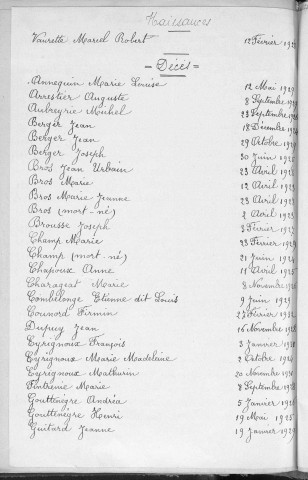 Naissances
Vaurette Marcel Robert 12 Février 192
= Décès =
Annequin Marie Louise 12 Mai 192
Arrestier Auguste 8 Septembre
Aubreyrie Michel 23 Septembre
Berger Jean 18 Décembre
Berger Jean 29 Octobre 192
Berger Joseph 30 Juin 192
Bros Jean Urbain 23 Avril 192
Bros Marie 12 Avril 192
Bros Marie Jeanne 23 Avril 192
Bros (mort-né) 2 Avril 192
Brousse Joseph 3 Février 192
Champ Marie 28 Février 192
Champ (mort né) 21 Juin 192
Chapoux Anne 11 Avril 192
Charageat Marie 8 Novembre
Combelonge Etienne dit Louis 9 Juin 192
Counord Firmin 27 Février 192
Dupuy Jean 16 Novembre 192
Eyrignoux François 3 Janvier 192
Eyrignoux Marie Madeleine 2 Octobre 192
Eyrignoux Mathurin 20 Novembre 192
Fintrenie Marie 8 Septembre 192
Gouttenègre Andréa 5 Janvier 192
Gouttenègre Henri 19 Mai 192
Guitard Jeanne 19 Janvier 192